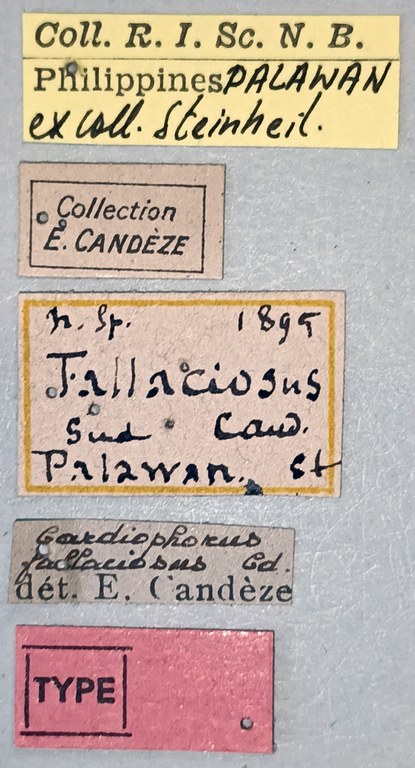 Coll. R. I. Sc. N. B.
Philippines PALAWAN
ex coll. Steinheil.
Collection
E. CANDÈZE
n. Sp. 1895
Fallaciosus
Sud Cand.
Palawan. St
Cardiophorus
fallaciosus Cd.
dét. E. Candèze
TYPE